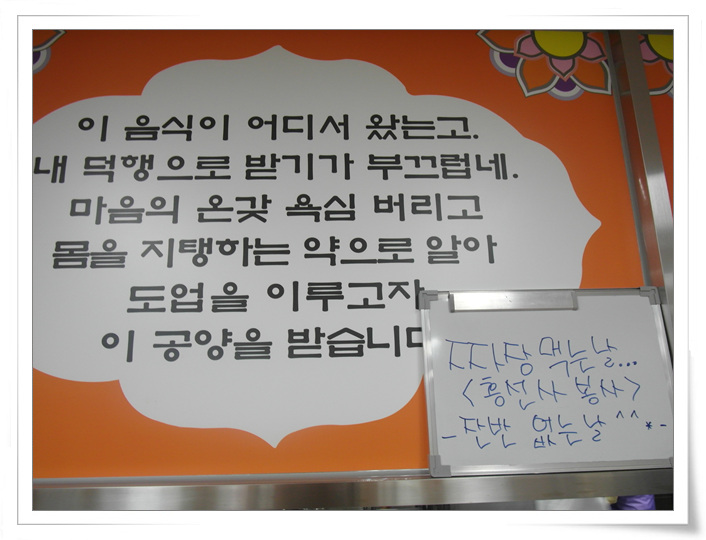 이 음식이 어디서 왔는고.
내 덕행으로 받기가 부끄럽네.
마음의 온갖 욕심 버리고
몸을 지탱하는 약으로 알아
도업을 이루고자
이 공양을 받습니다
짜장 먹는날...
<홍선사 봉사>
-잔반 없는날^^*-